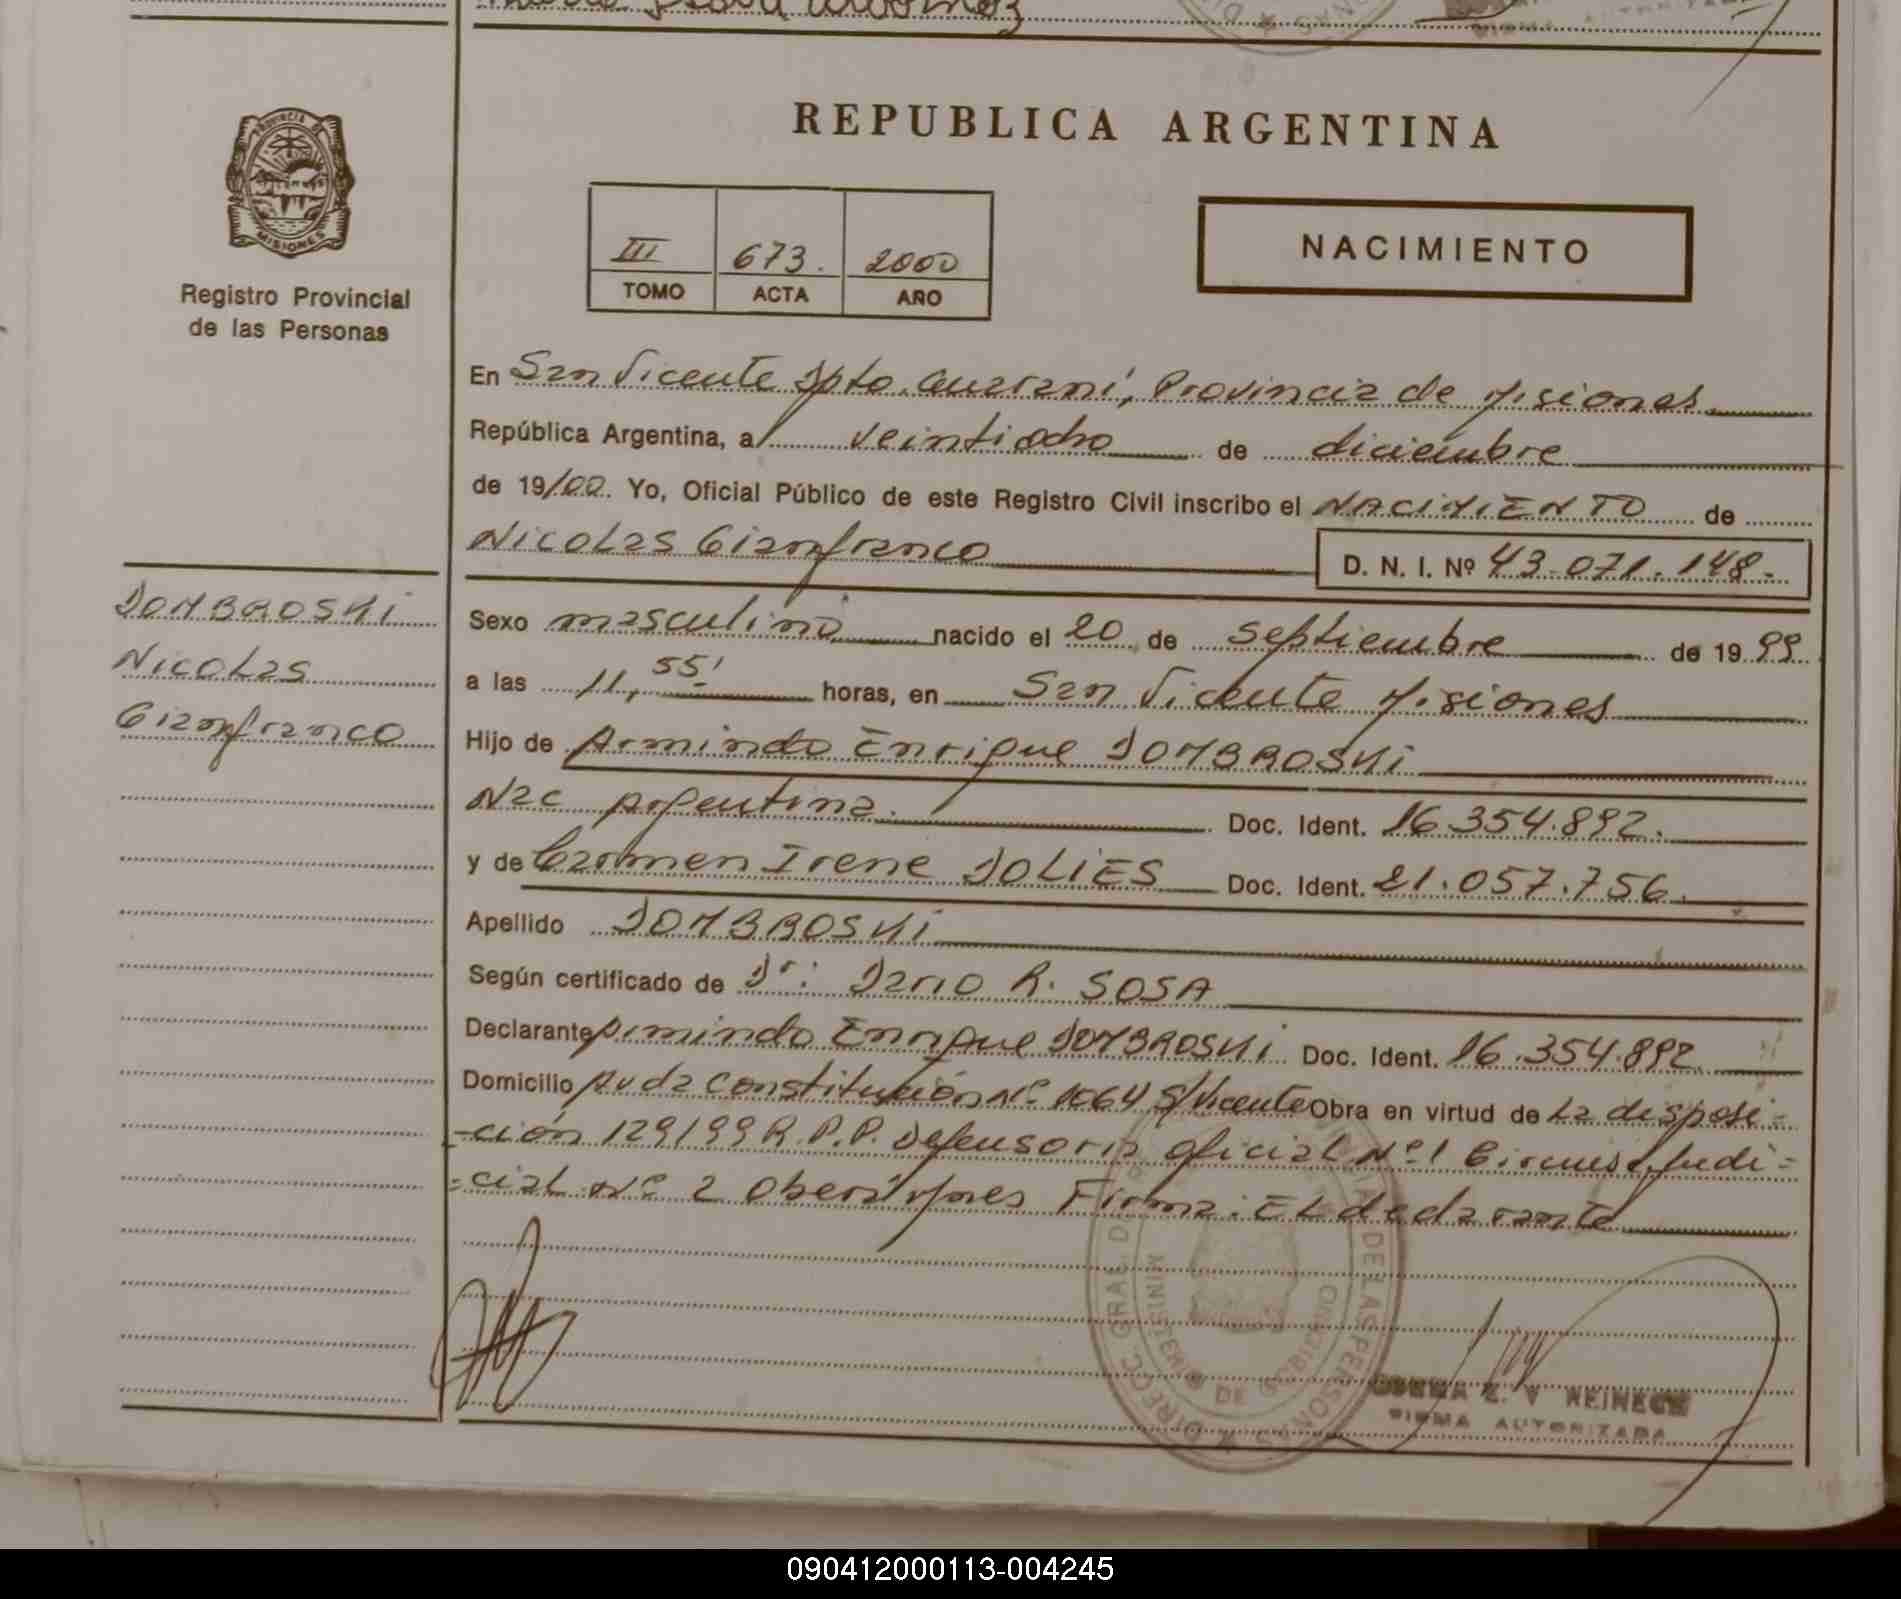 REPUBLICA ARGENTINA
PROVINCIA DE
MISIONES
Registro Provincial
de las Personas
III 673. 2000
TOMO ACTA AÑO
NACIMIENTO
En San Vicente Dpto. Guaraní, Provincia de Misiones
República Argentina, a veintiocho de diciembre
de 19/00. Yo, Oficial Público de este Registro Civil inscribo el NACIMIENTO de
Nicolas Gianfranco D. N. I. Nº 43.071.148.
DOMBROSKI
Nicolas
Gianfranco
Sexo masculino nacido el 20 de septiembre de 19 99
a las 11,55' horas, en San Vicente Misiones
Hijo de Armindo Enrique DOMBROSKI
Nac Argentina. Doc. Ident. 16.354.892.
y de Carmen Irene DOLIES Doc. Ident. 21.057.756.
Apellido DOMBROSKI
Según certificado de Dr: Dario R. SOSA
Declarante Armindo Enrique DOMBROSKI Doc. Ident. 16.354.892
Domicilio Avda Constitución Nº 1064 S/Vicente Obra en virtud de La disposi-
-ción 129/99 R.P.P. Defensoria Oficial Nº 1 Circunsc. Judi-
-cial Nº 2 Oberá Mnes Firma: EL declarante
DIRECC. GRAL. DE LAS PERSONAS
MINISTERIO DE GOBIERNO
Z. V REINECK
FIRMA AUTORIZADA
090412000113-004245